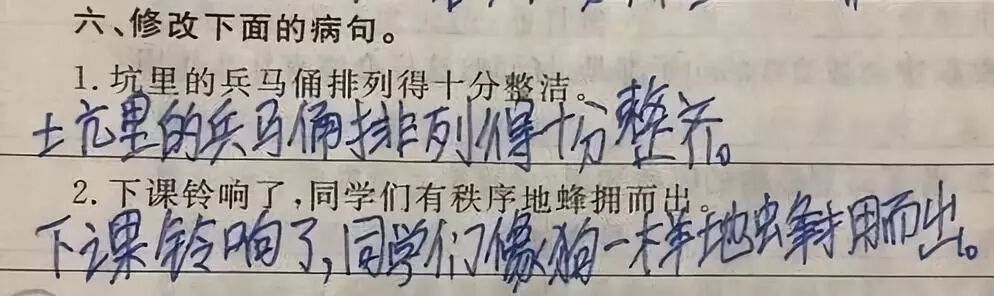 六、修改下面的病句。
1.坑里的兵马俑排列得十分整洁。
坑里的兵马俑排列得十分整齐。
2.下课铃响了,同学们有秩序地蜂拥而出。
下课铃响了,同学们像狗一样地蜂拥而出。